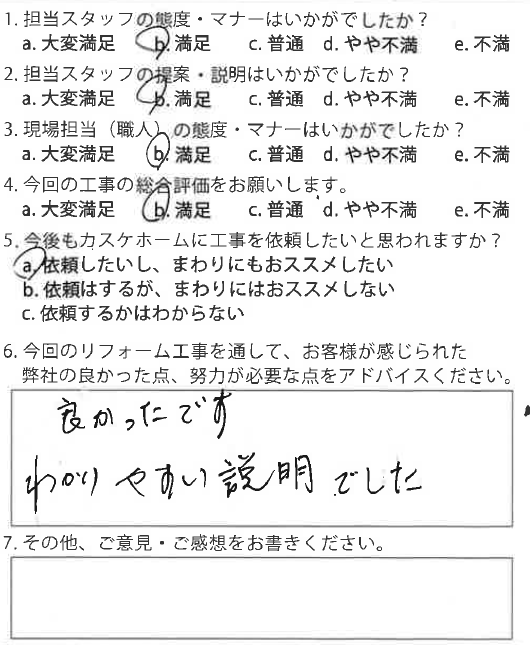 1. 担当スタッフの態度・マナーはいかがでしたか？
a. 大変満足 b. 満足 c. 普通 d. やや不満 e. 不満
2. 担当スタッフの提案・説明はいかがでしたか？
a. 大変満足 b. 満足 c. 普通 d. やや不満 e. 不満
3. 現場担当（職人）の態度・マナーはいかがでしたか？
a. 大変満足 b. 満足 c. 普通 d. やや不満 e. 不満
4. 今回の工事の総合評価をお願いします。
a. 大変満足 b. 満足 c. 普通 d. やや不満 e. 不満
5. 今後もカスケホームに工事を依頼したいと思われますか？
a. 依頼したいし、まわりにもおススメしたい
b. 依頼はするが、まわりにはおススメしない
c. 依頼するかはわからない
6. 今回のリフォーム工事を通して、お客様が感じられた
弊社の良かった点、努力が必要な点をアドバイスください。
良かったです
わかりやすい説明でした
7. その他、ご意見・ご感想をお書きください。